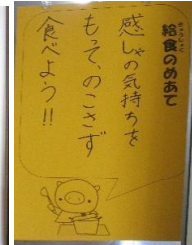 給食のめあて
感しゃの気持ちを
もって、のこさず
食べよう!!